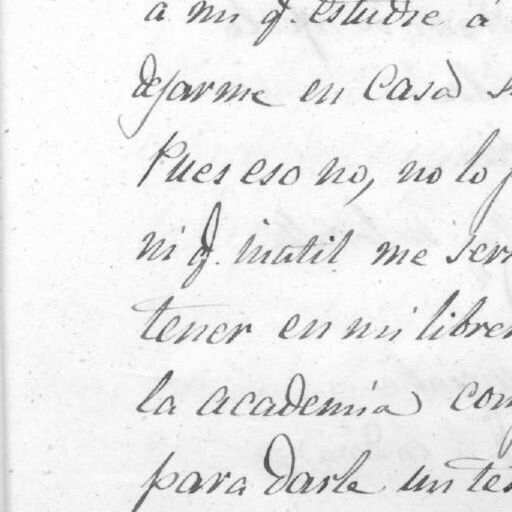 a mi q. estudie á
dejarme en Casa
Pues eso no, no lo
ni q. inutil me ser
tener en mi libre
la academia com
para darle un te